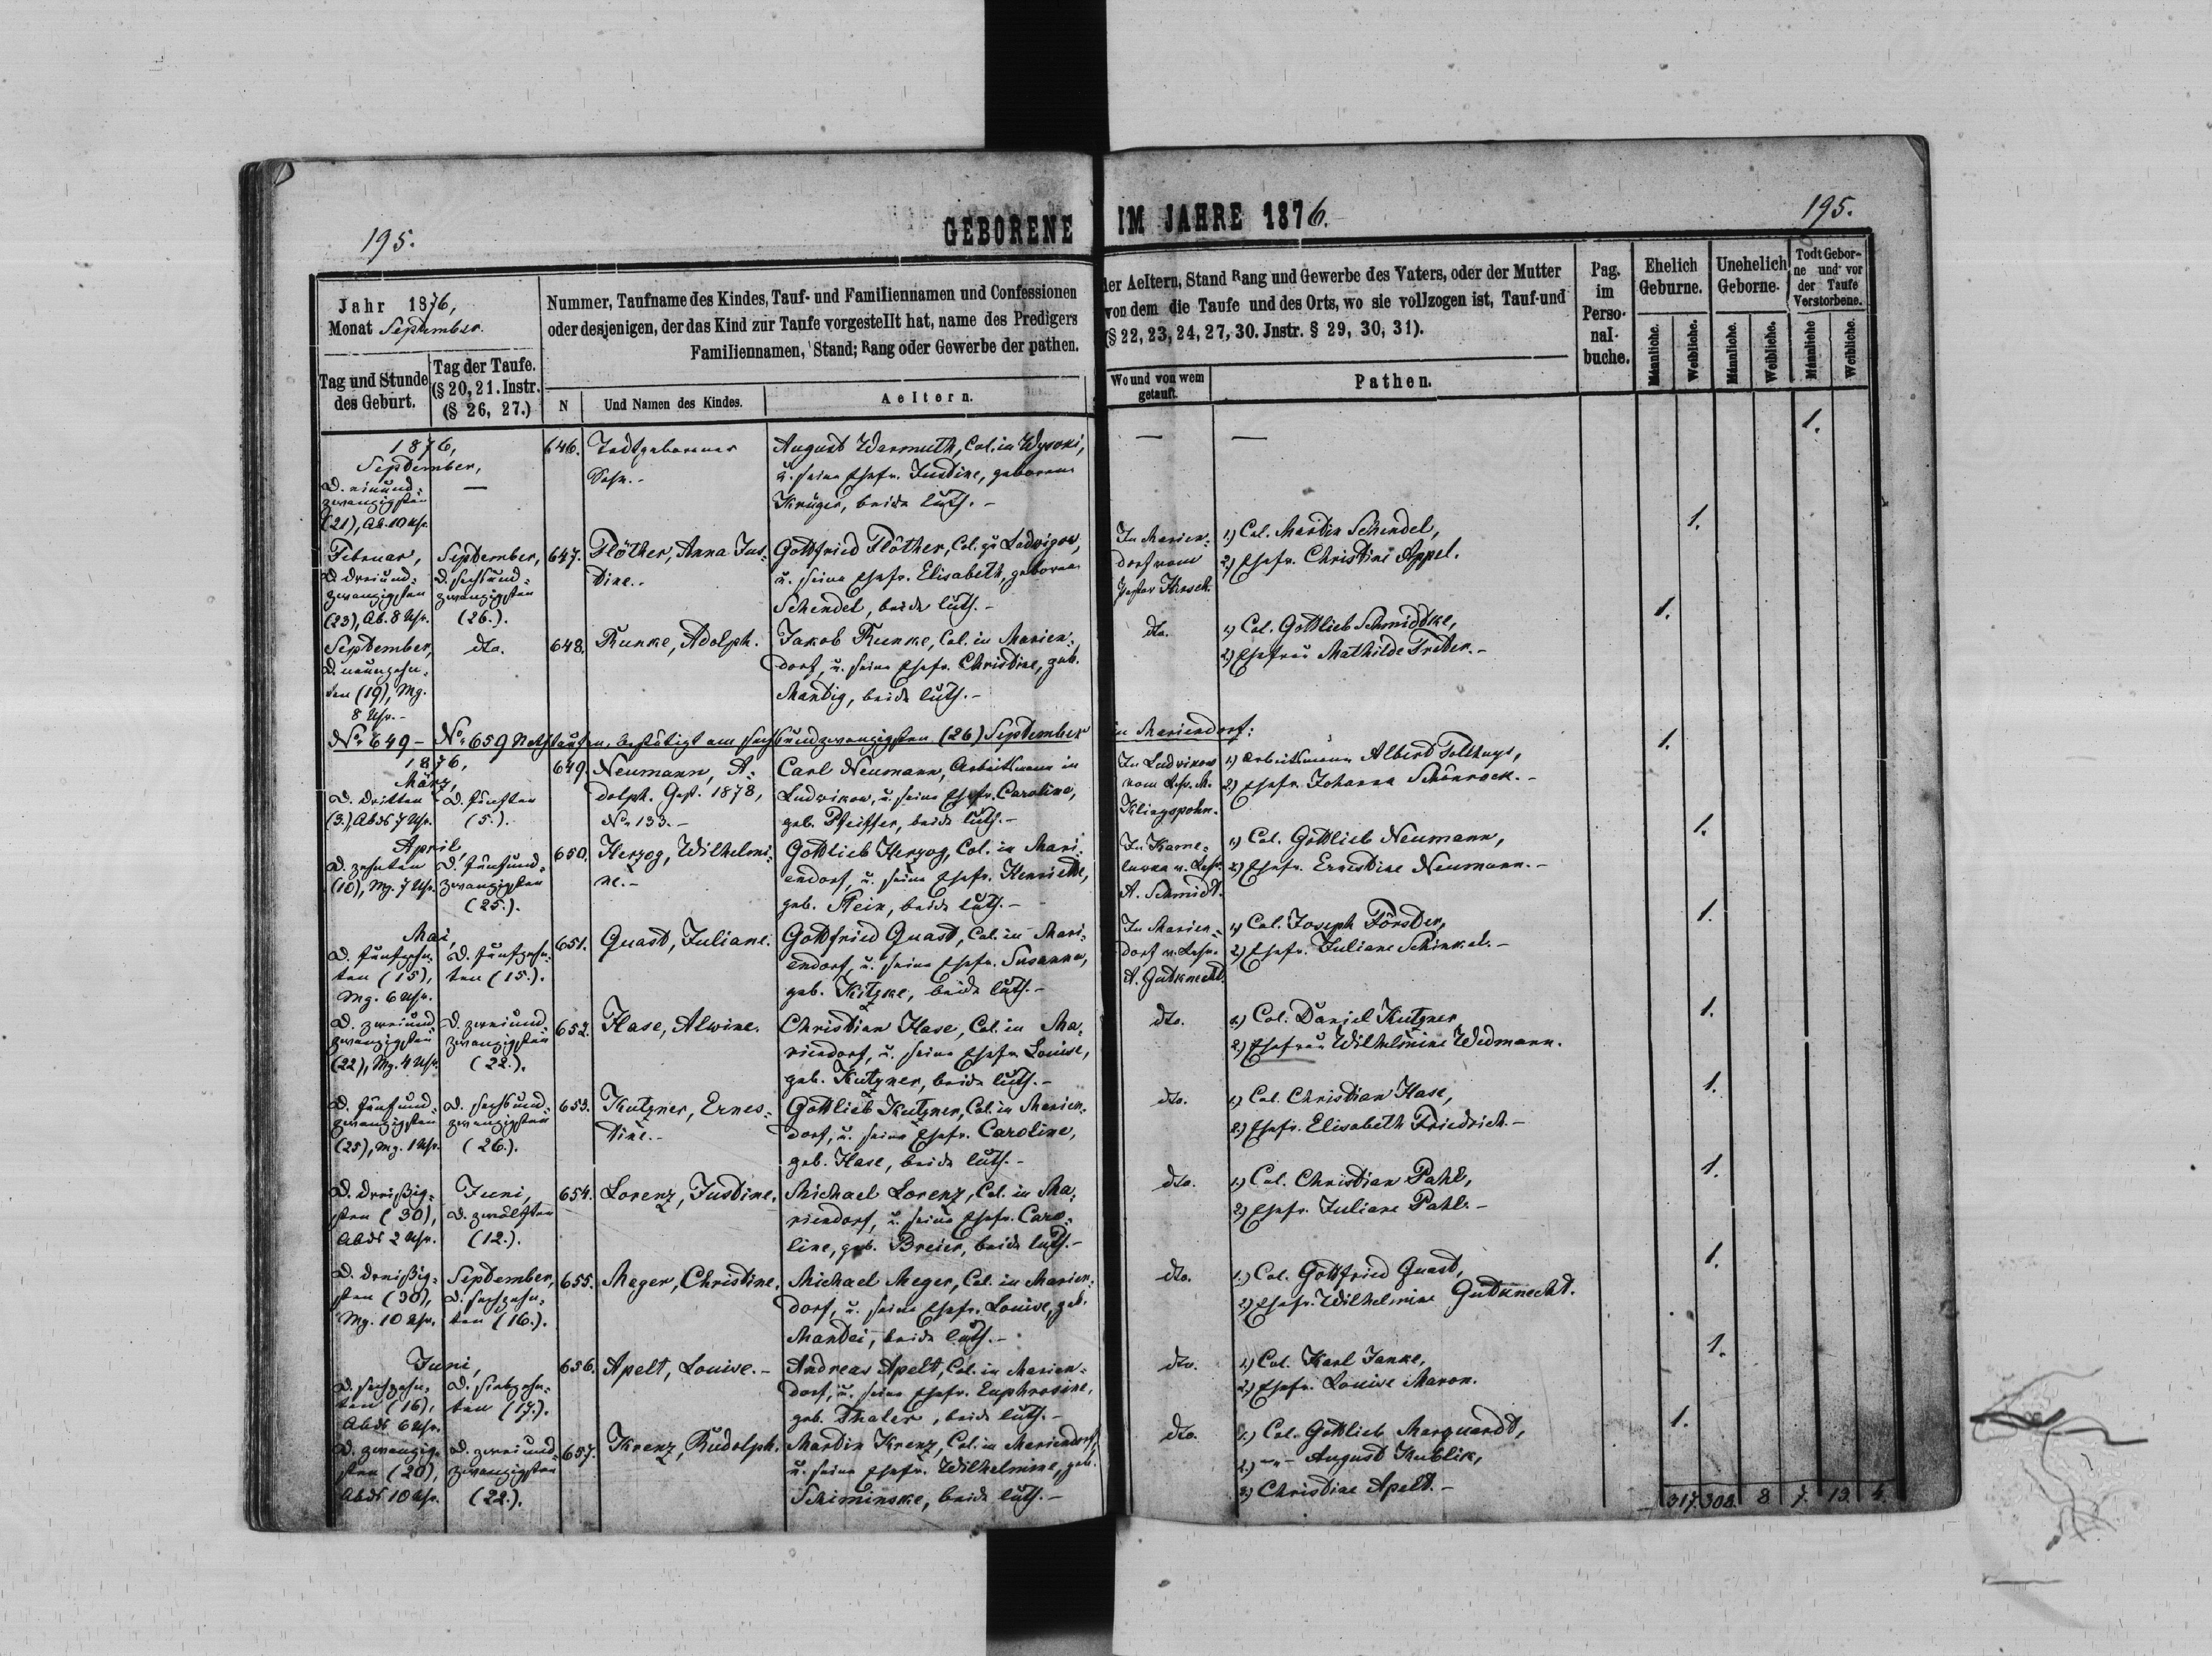 195.
GEBORENE IM JAHRE 1876.
195.
Jahr 1876,
Monat September.
Tag und Stunde des Geburt.
Tag der Taufe.
(§ 20, 21. Instr.
(§ 26, 27.)
Nummer, Taufname des Kindes, Tauf- und Familiennamen und Confessionen
oder desjenigen, der das Kind zur Taufe vorgestellt hat, name des Predigers
Familiennamen, Stand; Rang oder Gewerbe der pathen.
N
Und Namen des Kindes.
Aeltern.
der Aeltern, Stand Rang und Gewerbe des Vaters, oder der Mutter
von dem die Taufe und des Orts, wo sie vollzogen ist, Tauf-und
(§ 22, 23, 24, 27, 30. Jnstr. § 29, 30, 31).
Wo und von wem getauft.
Pathen.
Pag. im Perso- nal- buche.
Ehelich Geburne.
Unehelich Geborne.
Todt Gebor- ne und vor der Taufe Verstorbene.
Männliche.
Weibliche.
Männliche.
Weibliche.
Männliche
Weibliche.
1876,
September,
D. einund-
zwanzigsten
(21), Ab. 10 Uhr.
—
646.
Todtgeborener
Sohn.-
August Warmuth, Col. in Wysoki,
u. seine Ehefr. Justine, geborene
Krüger, beide luth.-
—
—
1.
Februar,
D. dreiund-
zwanzigsten
(23), Ab. 8 Uhr.
September,
D. sechsund-
zwanzigsten
(26.).
647.
Flöther, Anna Jus-
tine.-
Gottfried Flöther, Col. zu Ludwigow,
u. seine Ehefr. Elisabeth, geborene
Schendel, beide luth.-
In Marien-
dorf vom
Pastor
1) Col. Martin Schendel,
2) Ehefr. Christine Appel.
1.
September,
D. neunzehn-
ten (19), Mg.
8 Uhr.-
dto.
648.
Runke, Adolph.
Jakob Runke, Col. in Marien-
dorf, u. seine Ehefr. Christine, geb.
Mandig, beide luth.-
dto.
1) Col. Gottlieb Schmidtke,
2) Ehefrau Mathilde Treter.-
1.
No. 649 – No. 659 Nothtaufen, bestätigt am sechsundzwanzigsten (26) September in Mariendorf:
1876,
März,
D. dritten
(3.), Abds 7 Uhr.
D. fünften
(5.).
649.
Neumann, A-
dolph. Gest. 1878,
No. 133.-
Carl Neumann, Arbeitsmann in
Ludwikow, u. seine Ehefr. Caroline,
geb. Pfeiffer, beide luth.-
In Ludwikow
vom Lehr. M.
Klingspohn.
1) Arbeitsmann Albert
2) Ehefr. Johanna Schönrock.-
1.
April,
D. zehnten
(10), Mg. 7 Uhr.
D. fünfund-
zwanzigsten
(25.).
650.
Herzog, Wilhelmi-
ne.-
Gottlieb Herzog, Col. in Mari-
endorf, u. seine Ehefr. Henriette,
geb. Stein, beide luth.-
In
v. Lehr.
A. Schmidt.
1) Col. Gottlieb Neumann,
2) Ehefr. Ernestine Neumann.-
1.
Mai,
D. fünfzehn-
ten (15),
Mg. 6 Uhr.
D. fünfzehn-
ten (15.).
651.
Quast, Juliane.
Gottfried Quast, Col. in Mari-
endorf, u. seine Ehefr. Susanna,
geb. Kitzke, beide luth.-
In Marien-
dorf v. Lehr.
A. Gutknecht.
1) Col. Joseph Förster,
2) Ehefr. Juliane Schinkel.-
1.
D. zweiund-
zwanzigsten
(22), Mg. 4 Uhr.
D. zweiund-
zwanzigsten
(22.).
652.
Hase, Alwine.
Christian Hase, Col. in Ma-
riendorf, u. seine Ehefr. Louise,
geb. Kutzner, beide luth.-
dto.
1.) Col. Daniel Kutzner
2.) Ehefrau Wilhelmine Widmann.
1.
D. fünfund-
zwanzigsten
(25), Mg. 1 Uhr.
D. sechsund-
zwanzigsten
(26.).
653.
Kutzner, Ernes-
tine.-
Gottlieb Kutzner, Col. in Marien-
dorf, u. seine Ehefr. Caroline,
geb. Hase, beide luth.-
dto.
1.) Col. Christian Hase,
2.) Ehefr. Elisabeth Friedrich.-
1.
D. dreißig-
sten (30),
Abds 2 Uhr.
Juni,
D. zwölften
(12.).
654.
Lorenz, Justine.
Michael Lorenz, Col. in Ma-
riendorf, u. seine Ehefr. Caro-
line, geb. Breier, beide luth.-
dto.
1.) Col. Christian Pahl,
2) Ehefr. Juliane Pahl.-
1.
D. dreißig-
sten (30),
Mg. 10 Uhr.
September,
D. sechzehn-
ten (16.).
655.
Meger, Christine.
Michael Meger, Col. in Marien-
dorf, u. seine Ehefr. Louise, geb.
Mandei, beide luth.-
dto.
1.) Col. Gottfried Quast,
2) Ehefr. Wilhelmine Gutknecht.
1.
Juni,
D. sechzehn-
ten (16),
Abds 6 Uhr.
D. siebzehn-
ten (17.).
656.
Apelt, Louise.-
Andreas Apelt, Col. in Marien-
dorf, u. seine Ehefr. Euphrosine,
geb. Thaler, beide luth.-
dto.
1.) Col. Karl Janke,
2.) Ehefr. Louise Maron.
1.
D. zwanzig-
sten (20),
Abds 10 Uhr.
D. zweiund-
zwanzigsten
(22.).
657.
Krenz, Rudolph.
Martin Krenz, Col. in Mariendorf,
u. seine Ehefr. Wilhelmine, geb.
Schiminske, beide luth.-
dto.
1.) Col. Gottlieb Marquardt,
2.) -"- August Kublik,
3.) Christine Apelt.-
1.
317. 308. 8 7. 13. 4.